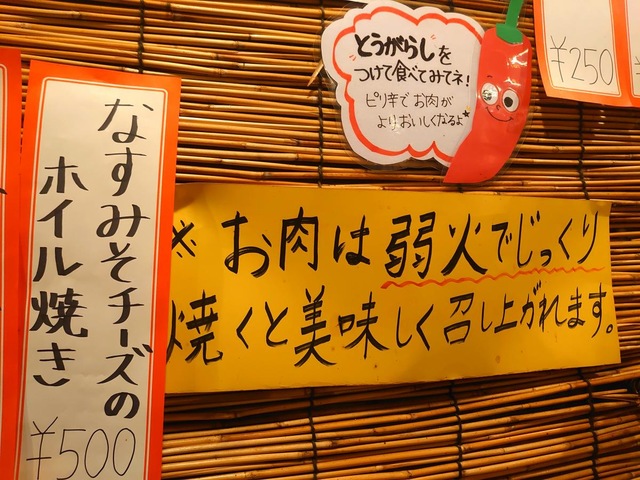 とうがらしを
つけて食べてみてネ!
ピリ辛でお肉が
よりおいしくなるよ
¥250
※お肉は弱火でじっくり
焼くと美味しく召し上がれます。
なすみそチーズの
ホイル焼き
¥500